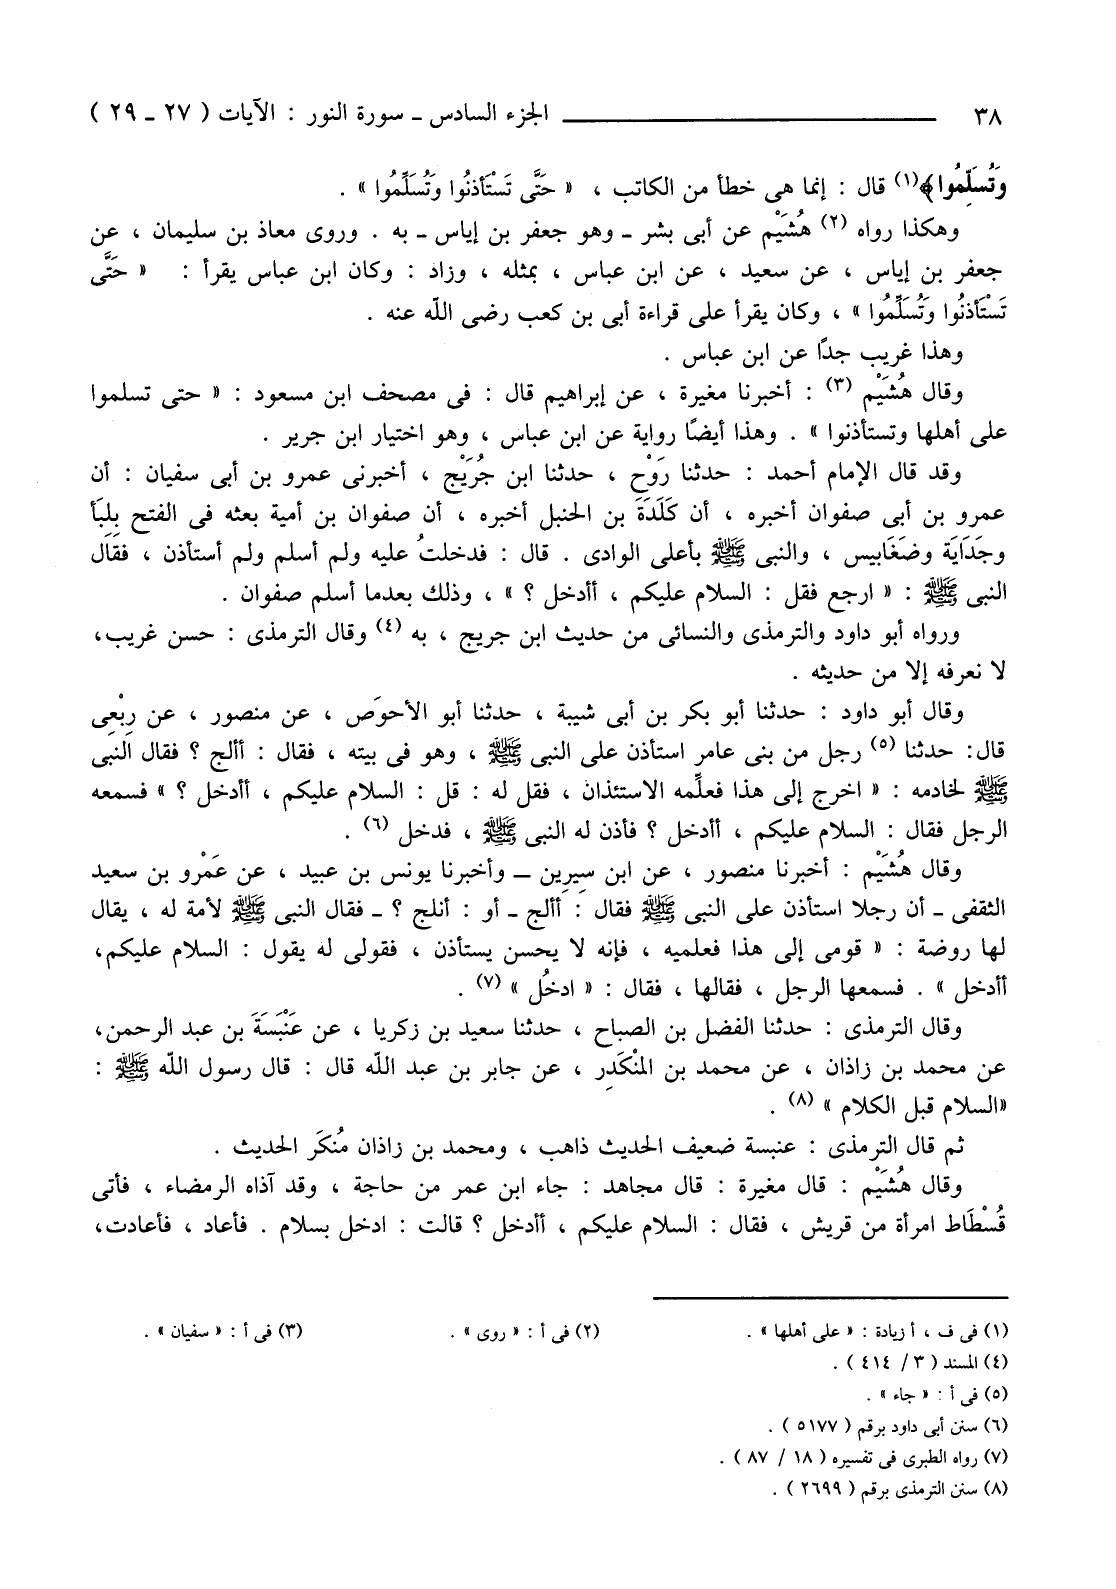 ٣٨ ــــــــــــ الجزء السادس ـ سورة النور : الآيات ( ٢٧ ـ ٢٩ )
وَتُسَلِّمُوا﴾(١) قال : إنما هى خطأ من الكاتب ، « حَتَّى تَسْتَأذنُوا وَتُسَلِّمُوا » .
وهكذا رواه (٢) هُشَيْم عن أبى بشر ـ وهو جعفر بن إياس ـ به . وروى معاذ بن سليمان ، عن
جعفر بن إياس ، عن سعيد ، عن ابن عباس ، بمثله ، وزاد : وكان ابن عباس يقرأ : « حَتَّى
تَسْتَأذنُوا وَتُسَلِّمُوا » ، وكان يقرأ على قراءة أبى بن كعب رضى اللّه عنه .
وهذا غريب جدًا عن ابن عباس .
وقال هُشَيْم (٣) : أخبرنا مغيرة ، عن إبراهيم قال : فى مصحف ابن مسعود : « حتى تسلموا
على أهلها وتستأذنوا » . وهذا أيضًا رواية عن ابن عباس ، وهو اختيار ابن جرير .
وقد قال الإمام أحمد : حدثنا رَوْح ، حدثنا ابن جُرَيْج ، أخبرنى عمرو بن أبى سفيان : أن
عمرو بن أبى صفوان أخبره ، أن كَلَدَةَ بن الحنبل أخبره ، أن صفوان بن أمية بعثه فى الفتح بِلِبَأ
وجَدَايَة وضَغَابيس ، والنبى ﷺ بأعلى الوادى . قال : فدخلتُ عليه ولم أسلم ولم أستأذن ، فقال
النبى ﷺ : « ارجع فقل : السلام عليكم ، أأدخل ؟ » ، وذلك بعدما أسلم صفوان .
ورواه أبو داود والترمذى والنسائى من حديث ابن جريج ، به (٤) وقال الترمذى : حسن غريب،
لا نعرفه إلا من حديثه .
وقال أبو داود : حدثنا أبو بكر بن أبى شيبة ، حدثنا أبو الأحوَص ، عن منصور ، عن رِبْعِى
قال: حدثنا (٥) رجل من بنى عامر استأذن على النبى ﷺ ، وهو فى بيته ، فقال : أألج ؟ فقال النبى
ﷺ لخادمه : « اخرج إلى هذا فعلِّمه الاستئذان ، فقل له : قل : السلام عليكم ، أأدخل ؟ » فسمعه
الرجل فقال : السلام عليكم ، أأدخل ؟ فأذن له النبى ﷺ ، فدخل (٦) .
وقال هُشَيْم : أخبرنا منصور ، عن ابن سِيرِين ـ وأخبرنا يونس بن عبيد ، عن عَمْرو بن سعيد
الثقفى ـ أن رجلا استأذن على النبى ﷺ فقال : أألج ـ أو : أنلج ؟ ـ فقال النبى ﷺ لأمة له ، يقال
لها روضة : « قومى إلى هذا فعلميه ، فإنه لا يحسن يستأذن ، فقولى له يقول : السلام عليكم،
أأدخل » . فسمعها الرجل ، فقالها ، فقال : « ادخُل » (٧) .
وقال الترمذى : حدثنا الفضل بن الصباح ، حدثنا سعيد بن زكريا ، عن عَنْبَسَةَ بن عبد الرحمن،
عن محمد بن زاذان ، عن محمد بن المنْكَدِر ، عن جابر بن عبد اللّه قال : قال رسول اللّه ﷺ :
«السلام قبل الكلام » (٨) .
ثم قال الترمذى : عنبسة ضعيف الحديث ذاهب ، ومحمد بن زاذان مُنكَر الحديث .
وقال هُشَيْم : قال مغيرة : قال مجاهد : جاء ابن عمر من حاجة ، وقد آذاه الرمضاء ، فأتى
قُسْطَاط امرأة من قريش ، فقال : السلام عليكم ، أأدخل ؟ قالت : ادخل بسلام . فأعاد ، فأعادت،
(١) فى ف ، أ زيادة : « على أهلها » . (٢) فى أ : « روى » . (٣) فى أ : « سفيان » .
(٤) المسند ( ٣ / ٤١٤ ) .
(٥) فى أ : « جاء » .
(٦) سنن أبى داود برقم ( ٥١٧٧ ) .
(٧) رواه الطبرى فى تفسيره ( ١٨ / ٨٧ ) .
(٨) سنن الترمذى برقم ( ٢٦٩٩ ) .